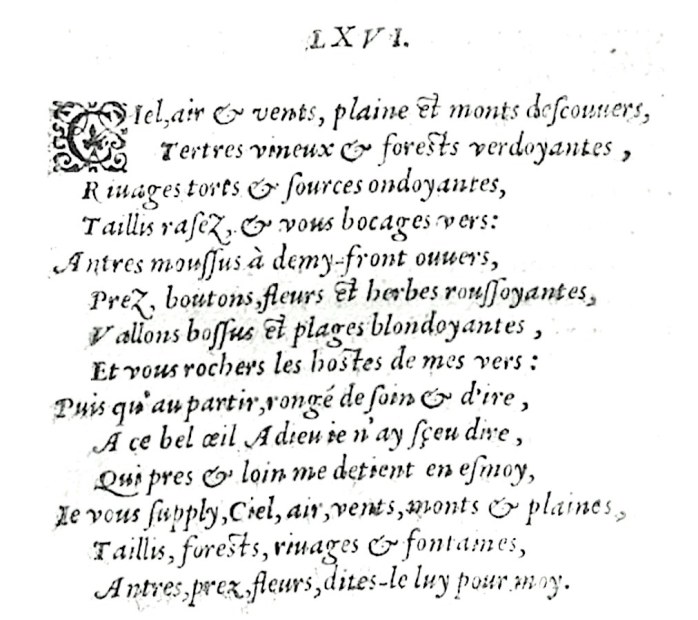 LXVI.
CIel,air & vents, plaine et monts descouuers,
Tertres vineux & forests verdoyantes ,
Riuages torts & sources ondoyantes,
Taillis rasez, & vous bocages vers:
Antres moussus à demy-front ouuers,
Prez, boutons,fleurs et herbes roussoyantes,
Vallons bossus et plages blondoyantes ,
Et vous rochers les hostes de mes vers :
Puis qu'au partir,rongé de soin & d'ire ,
A ce bel œil Adieu ie n'ay sçeu dire ,
Qui pres & loin me detient en esmoy,
Ie vous supply,Ciel, air,vents,monts & plaines,
Taillis, forests, riuages & fontaines,
Antres,prez,fleurs,dites-le luy pour moy.